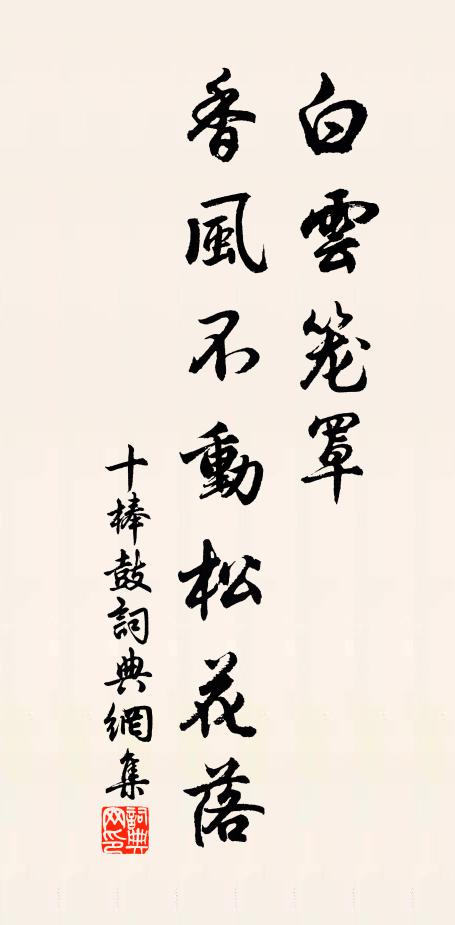 白雲笼罩
香風不動松花落
十棒鼓詞典網集
詞典網印